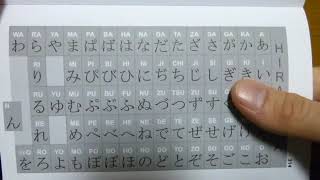 WA RA YA MA PA BA HA NA DA TA ZA SA GA KA A
わ ら や ま ぱ ば は な だ た ざ さ が か あ
RI MI PI BI HI NI JI CHI JI SHI GI KI I
り み ぴ び ひ に ぢ ち じ し ぎ き い
RU YU MU PU BU FU NU ZU TSU ZU SU
る ゆ む ぷ ぶ ふ ぬ づ つ ず す ぐ
N RE ME PE BE HE NE DE TE ZE SE
ん れ め ぺ べ へ ね で て ぜ せ げ
RO YO MO PO BO HO NO DO TO ZO SO GO KO O
を ろ よ も ぽ ぼ ほ の ど と ぞ そ ご こ お